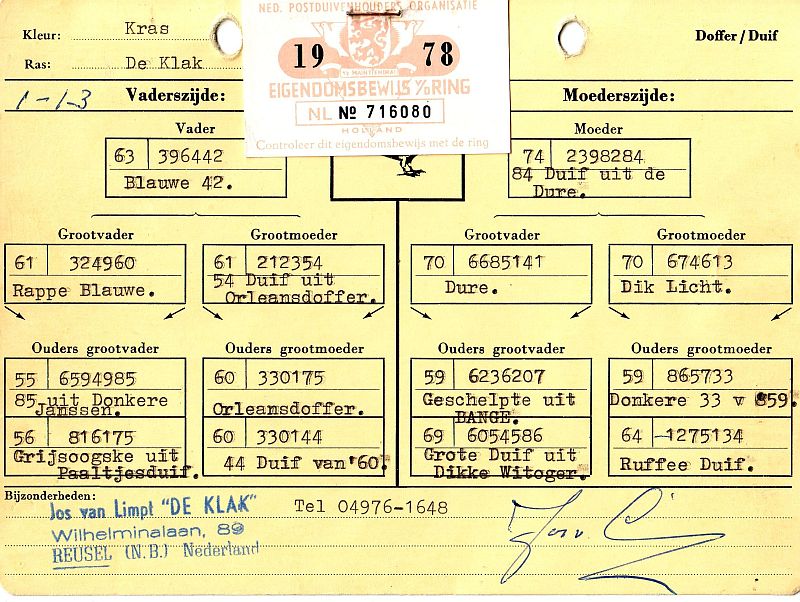 NED. POSTDUIVENHOUDERS ORGANISATIE
Kleur: Kras
19 78
Doffer / Duif
Ras: De Klak
EIGENDOMSBEWIJS V/D RING
1-1-3 Vaderszijde:
NL No 716080
Moederszijde:
HOLLAND
Controleer dit eigendomsbewijs met de ring
Vader
Moeder
63 396442
74 2398284
Blauwe 42.
84 Duif uit de
Dure.
Grootvader
Grootmoeder
Grootvader
Grootmoeder
61 324960
61 212354
70 6685141
70 674613
Rappe Blauwe.
54 Duif uit
Orleansdoffer.
Dure.
Dik Licht.
Ouders grootvader
Ouders grootmoeder
Ouders grootvader
Ouders grootmoeder
55 6594985
60 330175
59 6236207
59 865733
85 uit Donkere
Janssen.
Orleansdoffer.
Geschelpte uit
BANGE.
Donkere 33 v 859.
56 816175
60 330144
69 6054586
64 -1275134
Grijsoogske uit
Paaltjesduif.
44 Duif van '60.
Grote Duif uit
Dikke Witoger.
Ruffee Duif.
Bijzonderheden:
Jos van Limpt "DE KLAK"
Tel 04976-1648
Wilhelminalaan, 89
REUSEL (N.B.) Nederland